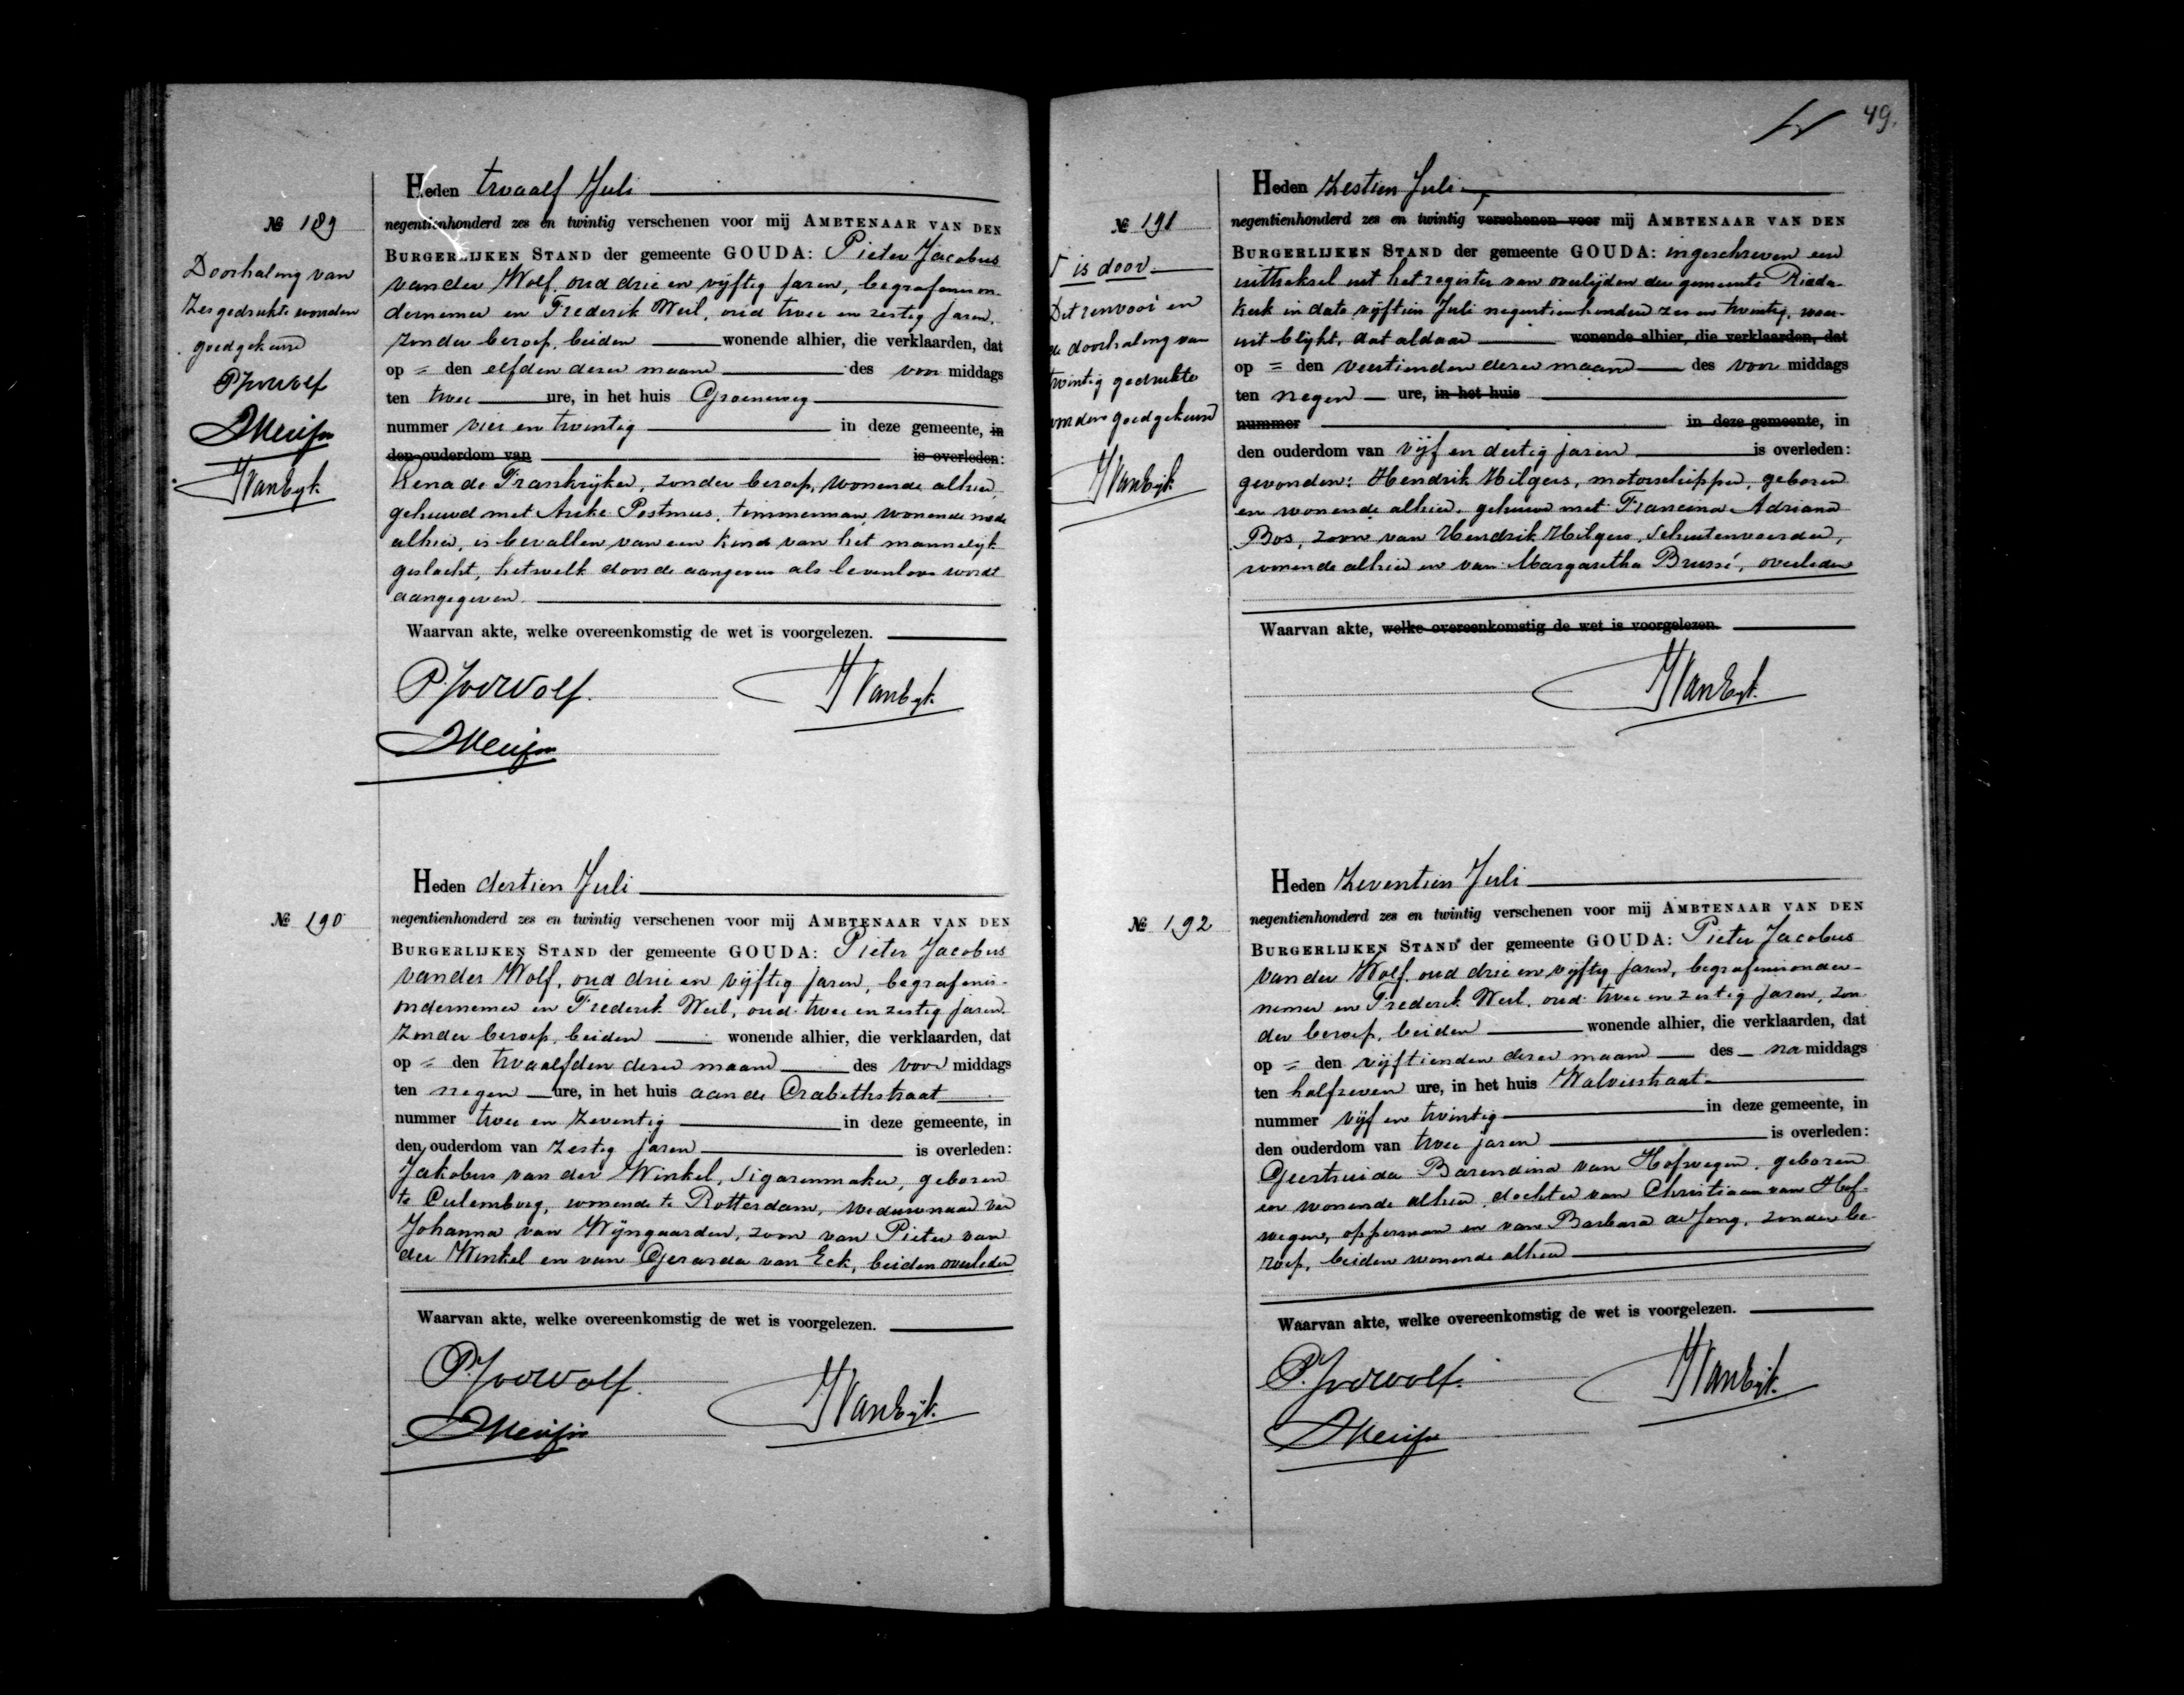 Heden twaalf Juli
№ 189
negentienhonderd zes en twintig verschenen voor mij AMBTENAAR VAN DEN
BURGERLIJKEN STAND der gemeente GOUDA: Pieter Jacobus
van der Wolf, oud drie en vijftig jaren, begrafenison-
dernemer en Frederik Weil, oud twee en zestig jaren,
zonder beroep, beiden wonende alhier, die verklaarden, dat
op = den elfden dezer maand des voor middags
ten twee ure, in het huis Groeneweg
nummer vier en twintig in deze gemeente, in
den ouderdom van is overleden:
Lena de Frankrijker, zonder beroep, wonende alhier
gehuwd met Arike Postmus, timmerman, wonende mede
alhier, is bevallen van een kind van het mannelijk
geslacht, hetwelk door de aangevers als levenloos wordt
aangegeven.
Waarvan akte, welke overeenkomstig de wet is voorgelezen.
PJvdWolf.
HVanEijk
Doorhaling van
zes gedrukte woorden
goedgekeurd
PJvdWolf
HVanEijk
Heden dertien Juli
№ 190
negentienhonderd zes en twintig verschenen voor mij AMBTENAAR VAN DEN
BURGERLIJKEN STAND der gemeente GOUDA: Pieter Jacobus
van der Wolf, oud drie en vijftig jaren, begrafenis-
ondernemer en Frederik Weil, oud twee en zestig jaren
zonder beroep, beiden wonende alhier, die verklaarden, dat
op = den twaalfden dezer maand des voor middags
ten negen ure, in het huis aan de Crabethstraat
nummer twee en zeventig in deze gemeente, in
den ouderdom van zestig jaren is overleden:
Jakobus van der Winkel, sigarenmaker, geboren
te Culemborg, wonende te Rotterdam, weduwnaar van
Johanna van Wijngaarden, zoon van Pieter van
der Winkel en van Gerarda van Eck, beiden overleden
Waarvan akte, welke overeenkomstig de wet is voorgelezen.
PJvdWolf.
HVanEijk.
49.
Heden zestien Juli
№ 191
negentienhonderd zes en twintig verschenen voor mij AMBTENAAR VAN DEN
BURGERLIJKEN STAND der gemeente GOUDA: ingeschreven een
uittreksel uit het register van overlijden der gemeente Ridder-
kerk in dato vijftien Juli negentienhonderd zes en twintig, waar-
uit blijkt, dat aldaar wonende alhier, die verklaarden, dat
op = den veertienden dezer maand des voor middags
ten negen ure, in het huis
nummer in deze gemeente, in
den ouderdom van vijf en dertig jaren is overleden:
gevonden: Hendrik Hilgers, motorschipper, geboren
en wonende alhier, gehuwd met Francina Adriana
Bos, zoon van Hendrik Hilgers, schuitenvoerder,
wonende alhier en van Margaretha Brussé, overleden
Waarvan akte, welke overeenkomstig de wet is voorgelezen.
HVanEijk.
is door
Dit renvooi en
de doorhaling van
twintig gedrukte
woorden goedgekeurd
HVanEijk
Heden zeventien Juli
№ 192
negentienhonderd zes en twintig verschenen voor mij AMBTENAAR VAN DEN
BURGERLIJKEN STAND der gemeente GOUDA: Pieter Jacobus
van der Wolf, oud drie en vijftig jaren, begrafenisonder-
nemer en Frederik Weil, oud twee en zestig jaren, zon-
der beroep, beiden wonende alhier, die verklaarden, dat
op = den vijftienden dezer maand des na middags
ten halfzeven ure, in het huis Walvisstraat
nummer vijf en twintig in deze gemeente, in
den ouderdom van twee jaren is overleden:
Geertruida Barendina van Hofwegen, geboren
en wonende alhier, dochter van Christiaan van Hof-
wegen, opperman en van Barbara de Jong, zonder be-
roep, beiden wonende alhier
Waarvan akte, welke overeenkomstig de wet is voorgelezen.
P.JvdWolf.
HVanEijk.